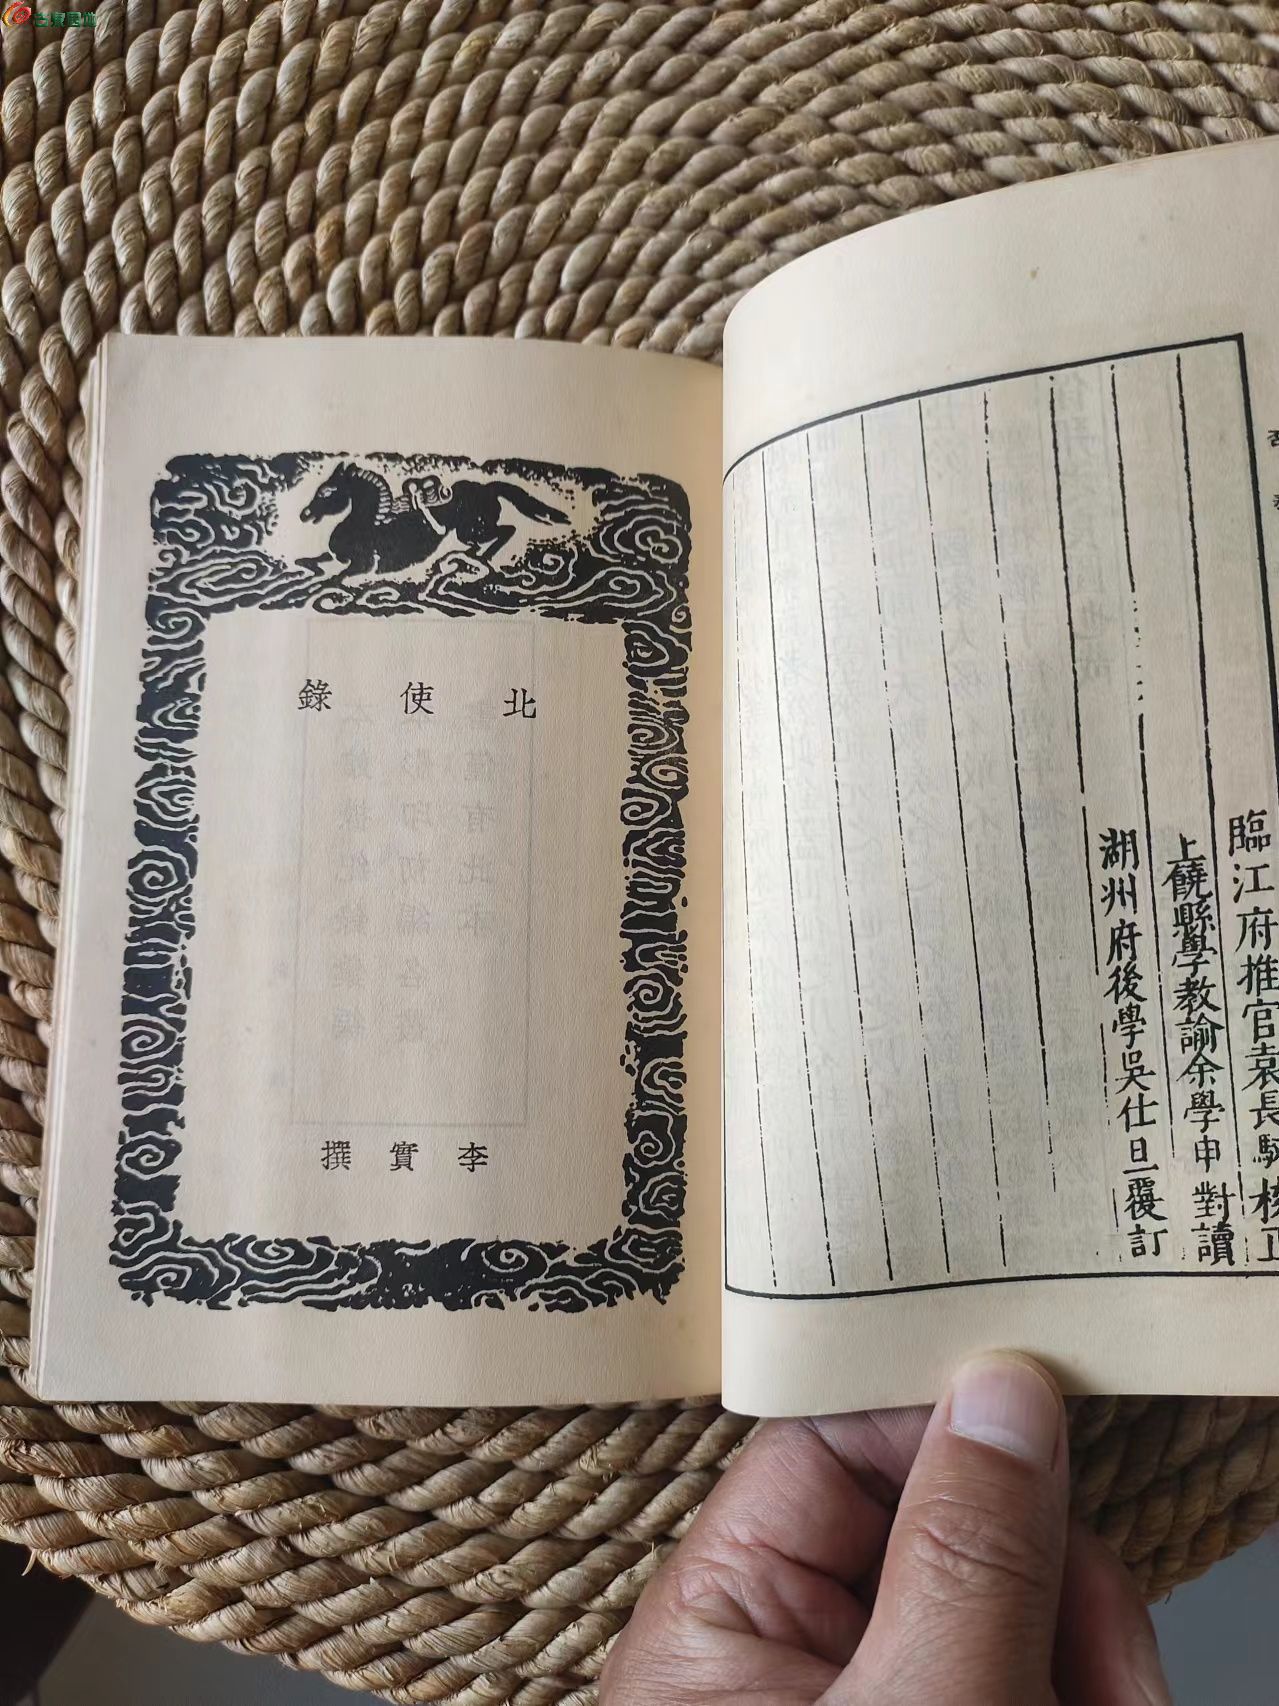 古泉园地
臨江府推官袁長馭校正
上饒縣學教諭余學申對讀
湖州府後學吳仕旦覆訂
北使錄
李實撰